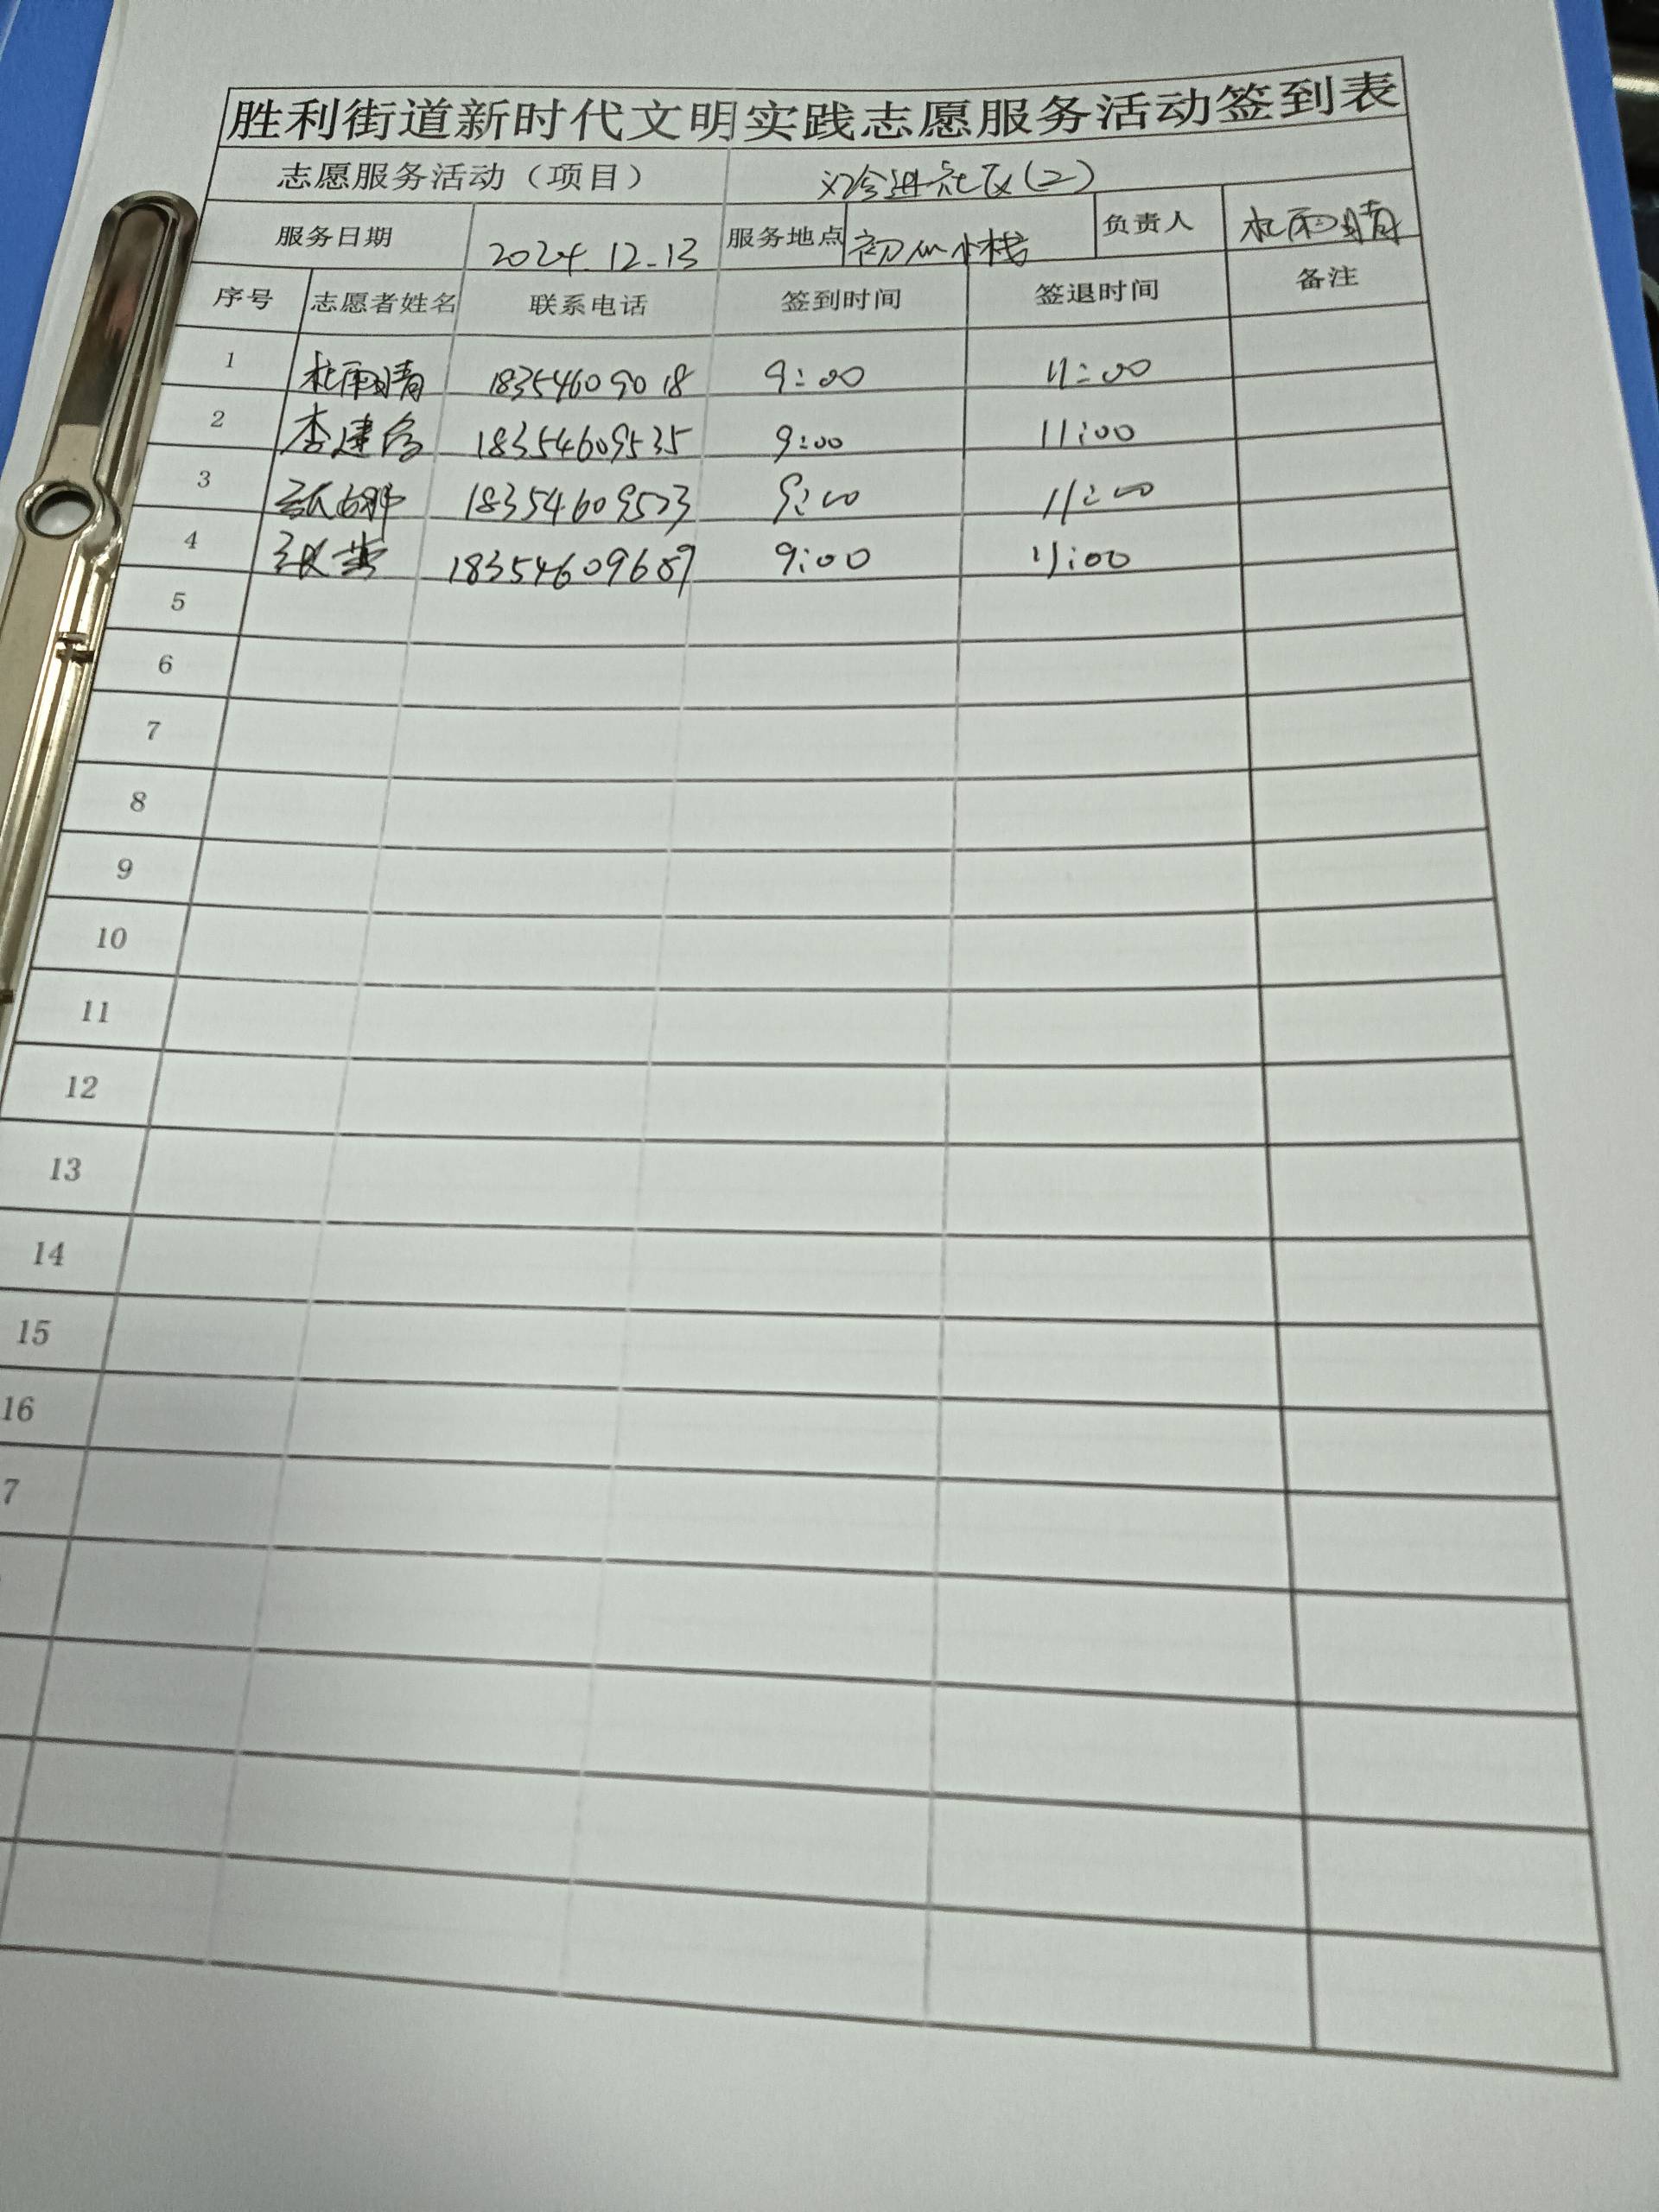 胜利街道新时代文明实践志愿服务活动签到表
志愿服务活动（项目） 义诊进社区(二)
服务日期 2024.12.13 服务地点 初心小栈 负责人 杜雨晴
序号 志愿者姓名 联系电话 签到时间 签退时间 备注
1 杜雨晴 18354609018 9:00 11:00
2 李建 18354609535 9:00 11:00
3 张娜 18354609523 9:00 11:00
4 18354609689 9:00 11:00
5
6
7
8
9
10
11
12
13
14
15
16
7